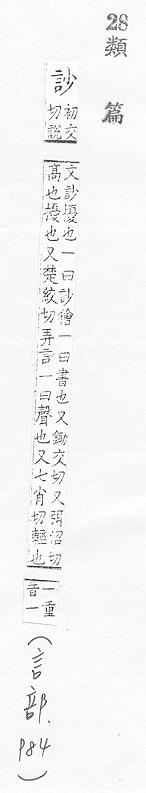 28 類 篇
訬
初交
切說
文訬擾也一曰訬獪一曰書也又鋤交切又弭沼切
高也擾也又楚絞切弄言一曰聲也又七肖切輕也
一重
音一
(言部.984)